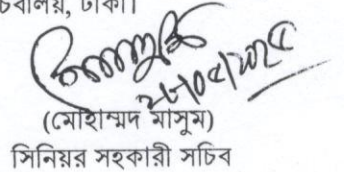 চিবালয়, ঢাকা।
(মোহাম্মদ মাসুম)
সিনিয়র সহকারী সচিব